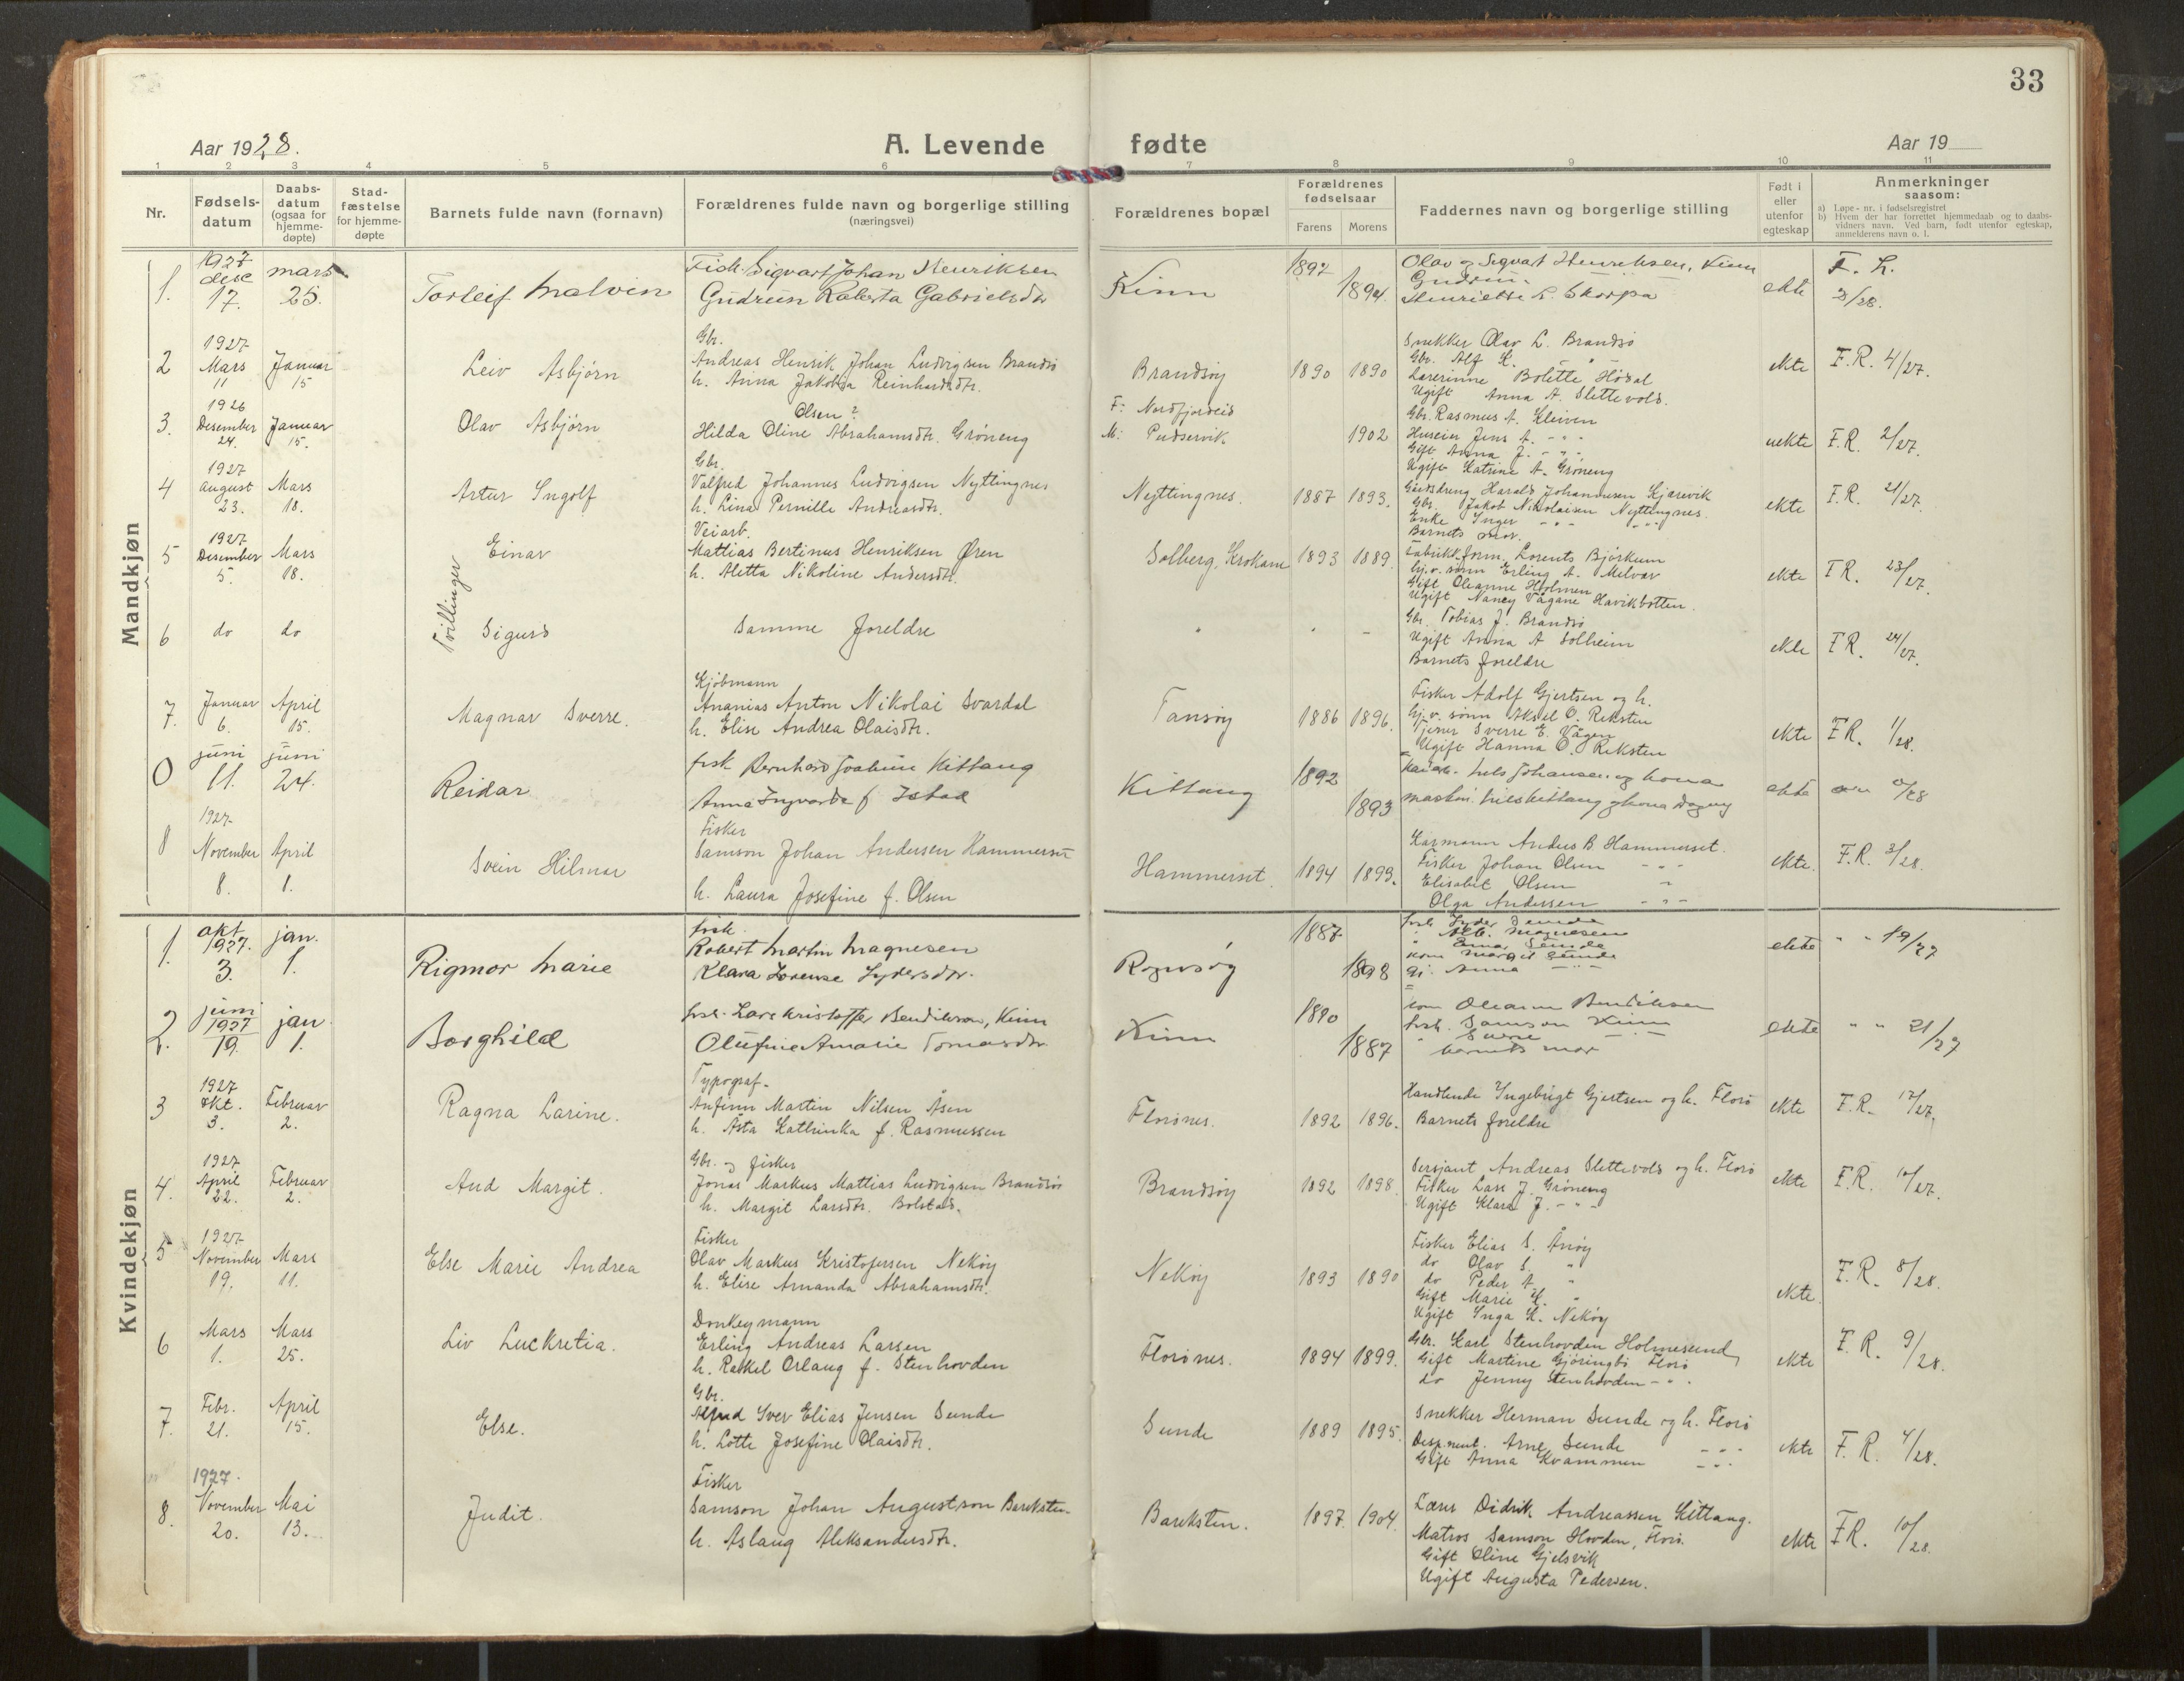 33
Aar 1928.
A. Levende fødte
Aar 19
1 2 3 4 5 6 7 8 9 10 11
Nr.
Fødsels-
datum
Daabs-
datum
(ogsaa for
hjemme-
døpte)
Stad-
fæstelse
for hjemme-
døpte
Barnets fulde navn (fornavn)
Forældrenes fulde navn og borgerlige stilling
(næringsvei)
Forældrenes bopæl
Forældrenes
fødselsaar
Farens Morens
Faddernes navn og borgerlige stilling
Født i
eller
utenfor
egteskap
Anmerkninger
saasom:
a) Løpe-nr. i fødselsregistret
b) Hvem der har forrettet hjemmedaab og to daabs-
vidners navn. Ved barn, født utenfor egteskap,
anmelderens navn o. l.
Mandkjøn
1.
1927
dese
17.
mars
25.
Torleif Malvin
Fisk. Sigvart Johan Henriksen
Gudrun Roberta Gabrielsdtr
Kinn
1897
1894
Olav og Sigvart Henriksen, Kinn
Gudrun
Henriette S. Skorpa
ekte
3/28.
2
1927
Mars
11
Januar
15
Leiv Asbjørn
Gbr.
Andreas Henrik Johan Ludvigsen Brandsø
h. Anna Jakobia Reinhardsdtr.
Brandsøy
1890 1890
Snekker Olav L. Brandsø
Gbr. Alf K. "
Lærerinne Bolette Hødal
Ugift Anna A. Slettevold.
ekte
F.R. 4/27.
3.
1926
Desember
24.
Januar
15.
Olav Asbjørn
Olsen?
Hilda Oline Abrahamsdtr. Grøneng
F: Nordfjordeid
M: Pudservik
1902
Gbr. Rasmus A. Kleiven
Huseier Jens A. - " -
Gift Anna J. - " -
Ugift Katrine A. Grøneng
uekte
F.R. 2/27.
4
1927
August
23.
Mars
18.
Artur Ingolf
Gbr.
Valfred Johannes Ludvigsen Nyttingnes
h. Lina Pernille Andreasdtr.
Nyttingnes.
1887 1893.
Gårdsdreng Harald Johannesen Kjørevik
Gbr. Jakob Nikolaisen Nyttingnes.
Enke Inger - " -
Barnets mor.
ekte
F.R. 21/27.
5
1927
Desember
5.
Mars
18.
Tvillinger
Einar
Veiarb.
Mattias Bertinus Henriksen Øren
h. Aletta Nikoline Andersdtr.
Solberg, Krokane
1893 1889.
Fabrikk.form. Lorents Bjørkum
Gj.v. sønn Erling A. Melvær
Gift Oleanne Holmen
Ugift Nancy Vågane Havikbotten.
ekte
F.R. 23/27.
6
do
do
Sigurd
Samme foreldre
Gbr. Tobias J. Brandsø
Ugift Anna A Solheim
Barnets foreldre
ekte
F.R. 24/27.
7.
Januar
6.
April
15.
Magnar Sverre.
Kjøbmann
Ananias Anton Nikolai Svardal
h. Elise Andrea Olaisdtr.
Tansøy
1886 1896.
Fisker Adolf Gjertsen og h.
Gj.v. sønn Aksel O. Reksten
Tjener Sverre E. Vågen
Ugift Hanna O. Reksten
ekte
F.R. 1/28.
0
juni
11.
juni
24.
Reidar
fisk Bernhard Joakim Kittang
Anna Ingvarda f. Istad
Kittang
1892
1893
Nels Johansen og kona
maskin. Nils Kittang og kona Dagny
ekte
8
1927
November
8.
April
1.
Svein Hilmar
Fisker
Samson Johan Andersen Hammerset
h. Laura Josefine f. Olsen
Hammerset.
1894 1893.
Kårmann Anders B Hammerset.
Fisker Johan Olsen - " -
Elisabet Olsen "
Olga Andersen - " -
ekte.
F.R. 3/28.
Kvindekjøn
1.
okt
1927.
3.
jan.
1.
Rigmor Marie
fisk.
Robert Martin Magnesen
Klara Lovense Sydersdtr.
Rognsøy
1887
1898
ekte
" " 19/27
2.
juni
1927
19.
jan.
1.
Borghild
fisk. Lars Kristoffer Bendiksen, Kinn
Olufine Amalie Tomasdtr
Kinn
1890
1887
kone Oleanna Bendiksen
fisk. Samson Kinn
" Sverre
barnets mor
ekte
" " 21/27
3
1927
Okt.
3.
Februar
2.
Ragna Larine.
Typograf.
Anfinn Martin Nilsen Åsen
h. Asta Kathinka f. Rasmussen
Florønes.
1892 1896.
Handlende Ingebrigt Gjertsen og h. Florø
Barnets foreldre
ekte
F.R. 17/27.
4.
1927
April
22.
Februar
2.
Aud Margit.
Gbr. og fisker
Jonas Markus Mattias Ludvigsen Brandsø
h. Margit Larsdtr. Bolstad.
Brandsøy
1892 1898.
Sersjant Andreas Slettevold og h. Florø
Fisker Lars J. Grøneng
Ugift Klara J. - " -
ekte
F.R. 10/27.
5
1927
November
19.
Mars
11.
Else Marie Andrea
Fisker
Olav Markus Kristofersen Nekøy
h. Elise Amanda Abrahamsdtr.
Nekøy
1893 1890
Fisker Elias S. Årøy
do Olav S. "
do Peder A. "
Gift Marie K. "
Ugift Inga K. Nekøy
ekte.
F.R. 8/28.
6
Mars
1.
Mars
25.
Liv Luckretia.
Donkeymann
Erling Andreas Larsen
h. Rakkel Orlaug f. Stenhovden
Florønes.
1894 1899.
Gbr. Karl Stenhovden Holmesund
Gift Martine Gjøringbø Florø
do Jenny Stenhovden - " -
ekte
F.R. 9/28.
7.
Febr.
21.
April
15.
Else.
Gbr.
Alfred Iver Elias Jensen Sunde
h. Lotte Josefine Olaisdtr.
Sunde
1889 1895.
Snekker Herman Sunde og h. Florø
Desp.ment. Arne Sunde - " -
Gift Anna Kvammen - " -
ekte
F.R. 4/28.
8.
1927.
November
20.
Mai
13.
Judit.
Fisker
Samson Johan Augustson Bareksten
h. Aslaug Aleksandersdtr.
Bareksten.
1897. 1904.
Lærer Didrik Andreassen Kittang.
Matros Samson Hovden, Florø.
Gift Oline Gjelsvik
Ugift Augusta Pedersen.
ekte
F.R. 10/28.